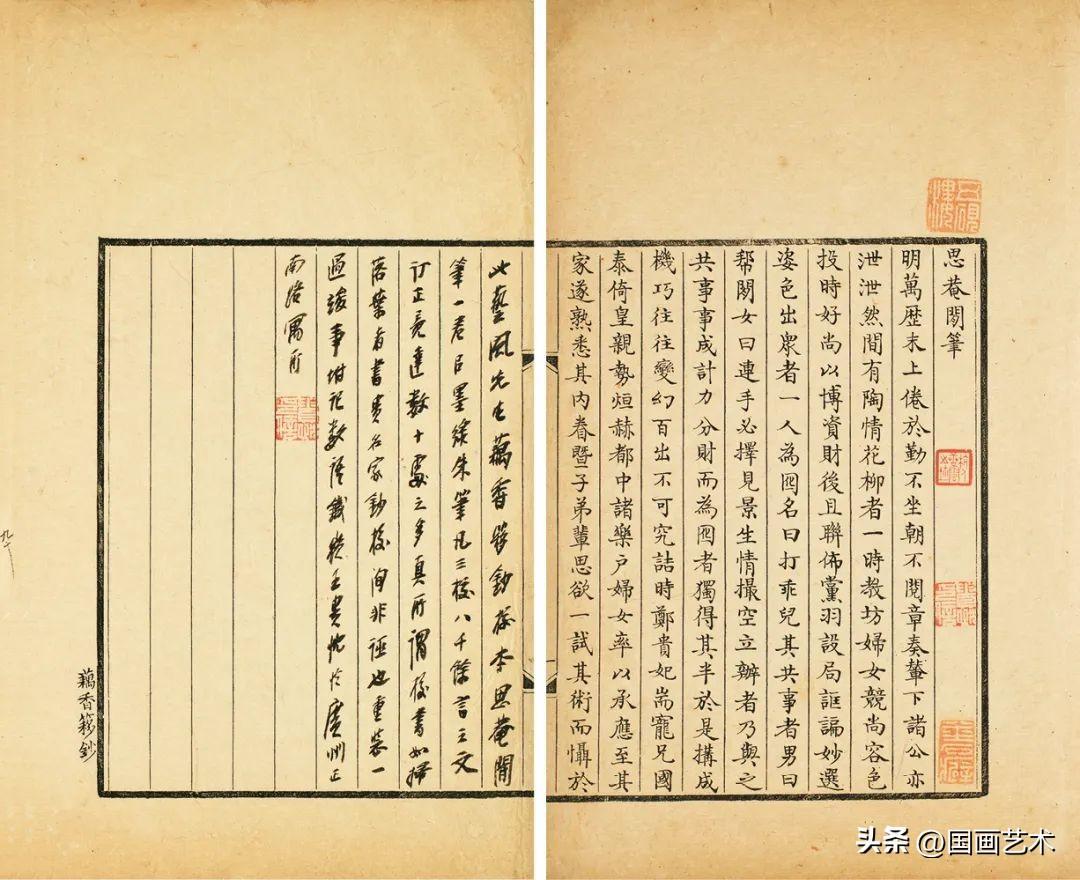 思菴閒筆
明萬歷末上倦於勤不坐朝不閱章奏輦下諸公亦
泄泄然間有陶情花柳者一時教坊婦女競尚容色
投時好尚以博資財後且聯佈黨羽設局誆諞妙選
姿色出眾者一人為囮名曰打乖兒其共事者男曰
幫閒女曰連手必擇見景生情撮空立辦者乃與之
共事事成計力分財而為囮者獨得其半於是搆成
機巧往往變幻百出不可究詰時鄭貴妃耑寵兄國
泰倚皇親勢烜赫都中諸樂戶婦女率以承應至其
家遂熟悉其內眷暨子弟輩思欲一試其術而懾於
此藝風先生藕香簃鈔校本思菴閒
筆一卷以墨綠朱筆凡三校八千餘言之文
訂正竟達數十處之多真所謂校書如掃
落葉者書貴名家鈔校洵非誣也重裝一
過竣事坿記數語王貴忱於廣州正
南路寓所
藕香簃鈔
头条 @国画艺术